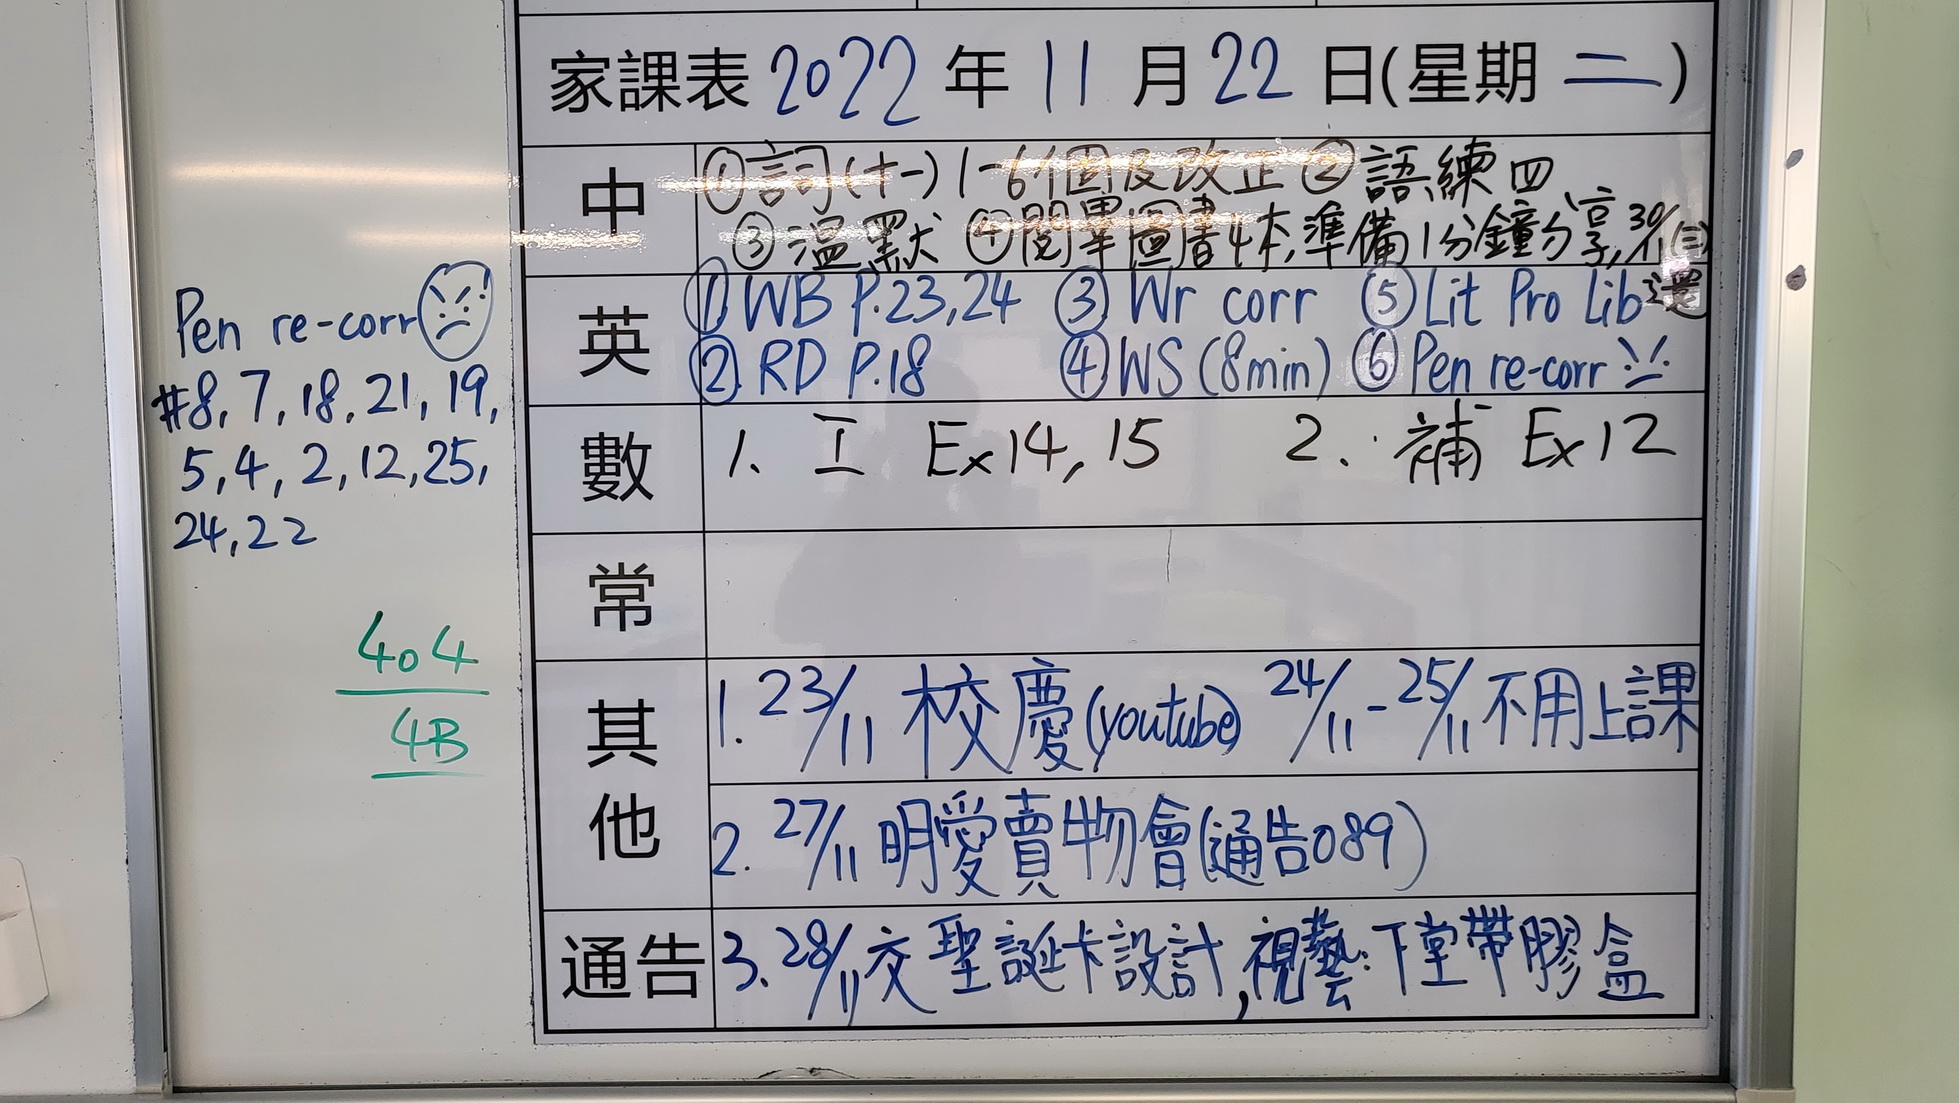 家課表 2022 年 11 月 22 日(星期 二)
中
①詞(十一) 1-6個及改正 ②語練四
③溫默 ④閱畢圖書4本,準備1分鐘分享,30/11(三)
還
英
① WB P.23,24 ③ Wr corr ⑤ Lit Pro Lib
② RD P.18 ④ WS (8min) ⑥ Pen re-corr
數
1. 工 Ex14, 15 2. 補 Ex12
常
其他
1. 23/11 校慶(youtube) 24/11-25/11 不用上課
2. 27/11 明愛賣物會(通告089)
通告
3. 28/11 交聖誕卡設計, 視藝:下堂帶膠盒
Pen re-corr
#8, 7, 18, 21, 19,
5, 4, 2, 12, 25,
24, 22
404
4B